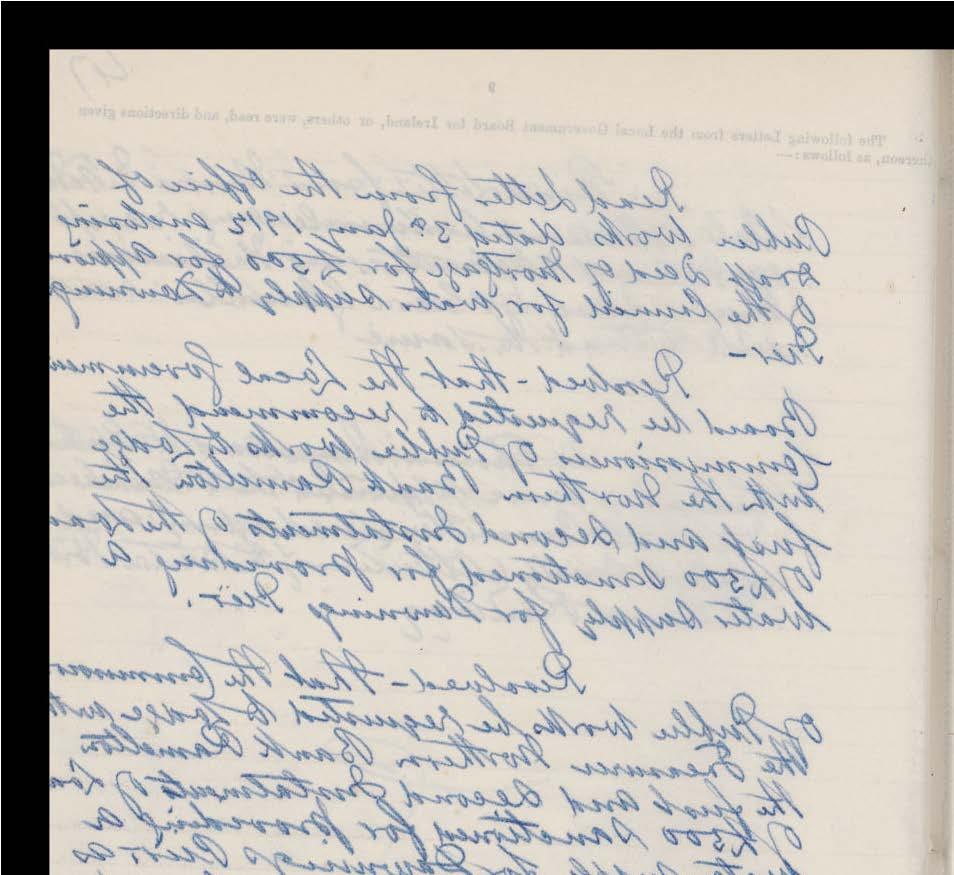 9
The following Letters from the Local Government Board for Ireland, or others, were read, and directions given
thereon, as follows:—
Read letter from the Office of
Public Works dated 3rd Jany 1912 enclosing
Draft Deed of Mortgage for £500 for
of the Council for Water Supply to Downings
Pier -
Resolved - that the Local Government
Board be requested to recommend the
Commissioners of Public Works to lodge
with the Northern Bank Ramelton the
first and second Instalments of the Loan
of £500 sanctioned for providing a
Water Supply for Downings Pier.
Resolved - that the
of Public Works be requested to lodge with
the Treasurer Northern Bank Ramelton
the first and second Instalments of Loan
of £500 sanctioned for providing a
Water Supply to Downings Pier as